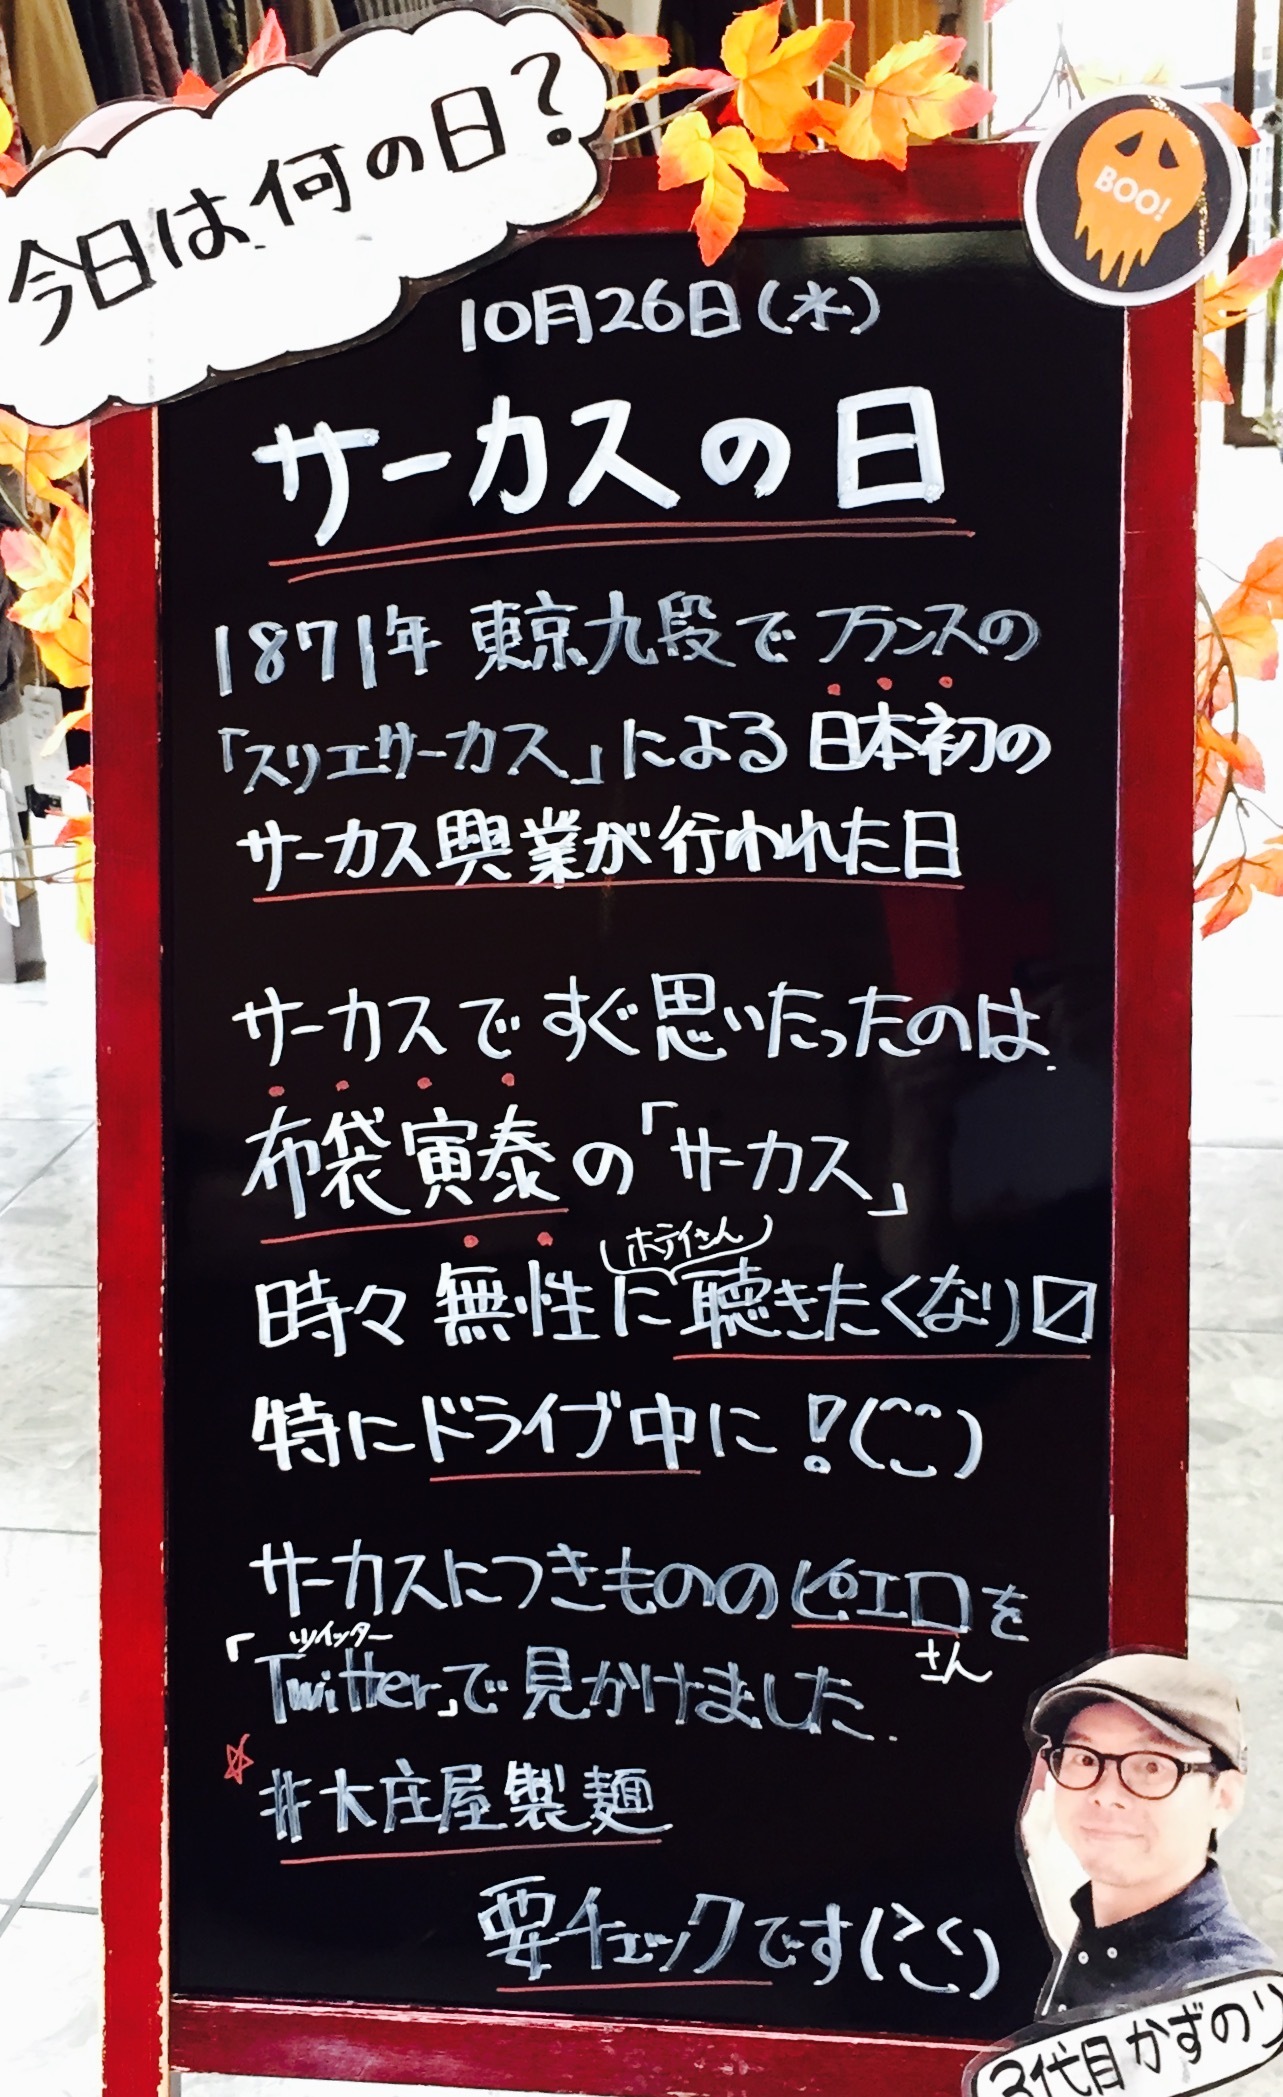 今日は何の日?
BOO!
10月26日(水)
サーカスの日
1871年 東京九段でフランスの
「スリエサーカス」による日本初の
サーカス興業が行われた日
サーカスですぐ思いたったのは
布袋寅泰の「サーカス」
ホテイさん
時々無性に聴きたくなり〼
特にドライブ中に!(^^)
サーカスにつきもののピエロを
さん
ツイッター
「Twitter」で見かけました
☆
#大庄屋製麺
要チェックです
3代目かずのり